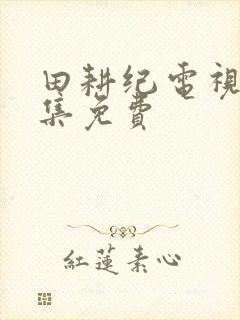 田耕纪电視
集免費
紅蓮素心